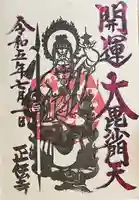 開運
大毘沙門天
令和五年七月一日
正傳寺